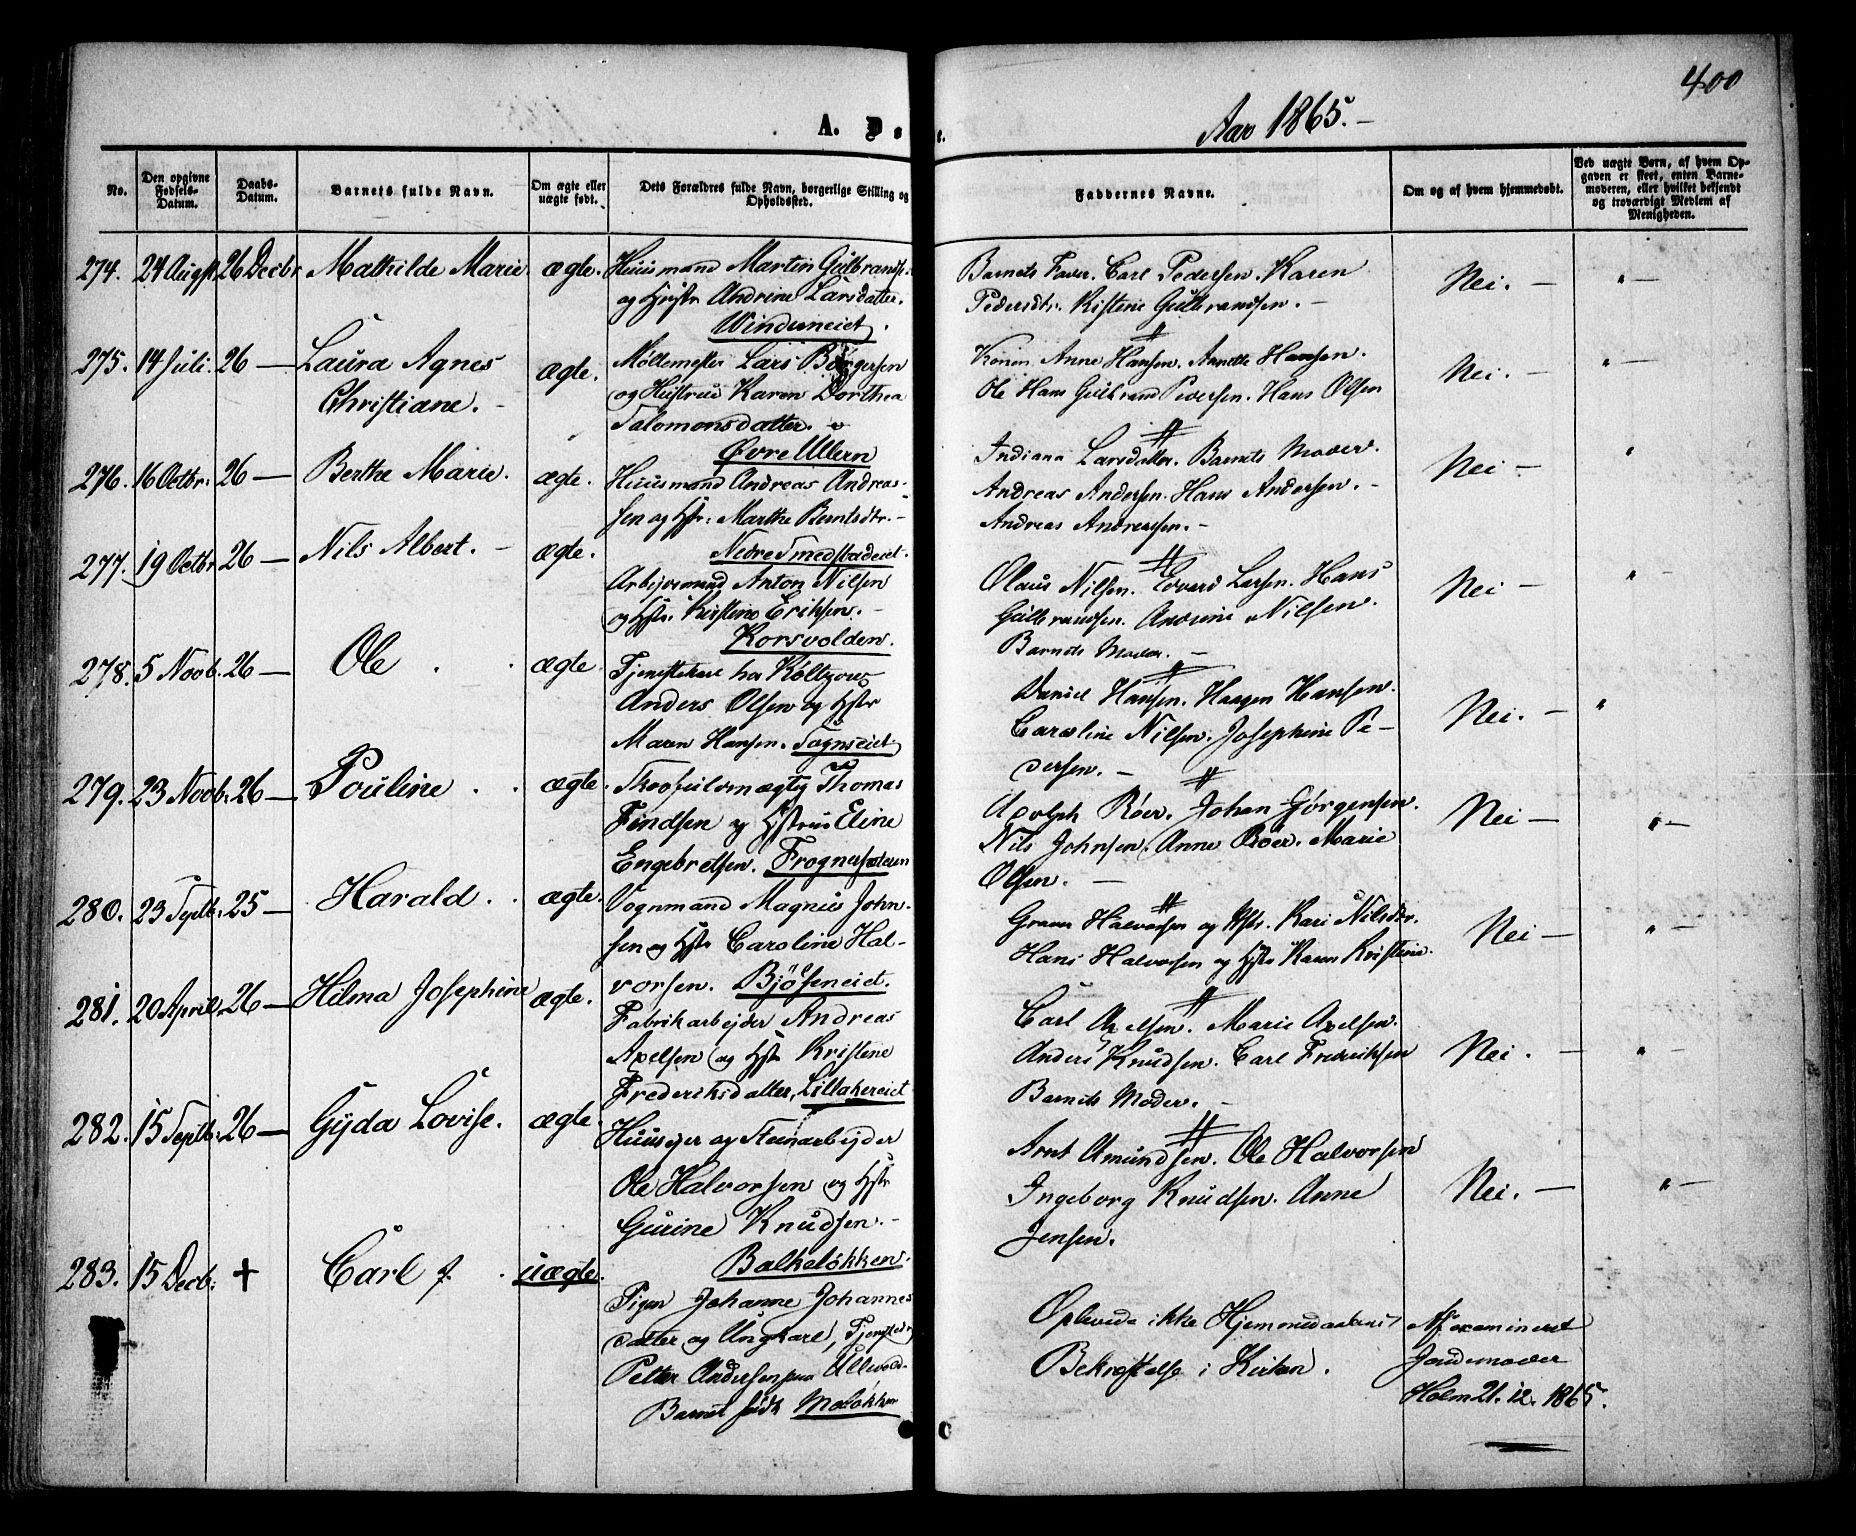 400
A. D
Aar 1865.
No.
Den opgivne Fødsels-Datum.
Daabs-Datum.
Barnets fulde Navn.
Om ægte eller uægte født.
Dets Forældres fulde Navn, borgerlige Stilling og Opholdssted.
Faddernes Navne.
Om og af hvem hjemmedøbt.
Ved uægte Børn, af hvem Opgaven er skeet, enten Barnemoderen, eller hvilket bekjendt og troværdigt Medlem af Menigheden.
274. 24 Augst 26 Decbr Mathilde Marie ægte. Huusmand Martin Gulbrands.
og Hustr Andrine Larsdatter.
Windereneiet.
Barnets Fader. Carl Pedersen. Karen
Pedersdtr. Kistene Gulbrandsen. –
Nei. – " –
275. 14 Juli 26 — Laura Agnes
Christiane. – ægte. Møllemester Lars Børgersen
og Hustrue Karen Dorthea
Salomonsdatter.
Øvre Ullern
Konen Anne Hansen. Annette Hansen.
Ole Hans Gulbrand Pedersen. Hans Olsen
Nei. – " –
276. 16 Octbr: 26 — Berthe Marie. ægte. Huusmand Andreas Andreas-
sen og Hstr: Marthe Berntsdtr. –
Nedre Smedstadeiet.
Indiana Larsdatter. Barnets Moder.
Andreas Andersen. Hans Andersen. –
Andreas Andreassen. –
Nei – "
277. 19 Octbr 26 — Nils Albert. – ægte. Arbeidsmand Anton Nilsen
og Hstr. Kirstine Eriksen. –
Korsvolden.
Olaus Nilsen. Edvard Larsen. Hans
Gulbrandsen. Andrine Nilsen.
Barnets Moder. –
Nei – " –
278. 5 Novb. 26 — Ole ægte. Tjenestekar hos
Anders Olsen og Hstr
Maren Hansen. Sognseiet
Daniel Hansen. Haagen Hansen.
Caroline Nilsen. Josephine Pe-
dersen. –
Nei. – "
279. 23 Novb. 26 — Pouline ægte. Skovfuldmægtig Thomas
Findsen og Hstrue Eline
Engebretsen. Frognersæteren
Adolph Röer. Johan Jörgensen.
Nils Johnsen. Anne Röer. Marie
Olsen. —
Nei – " –
280. 23 Septb. 25 — Harald. ægte. Vognmand Magnus John-
sen og Hstr Caroline Hal-
vorsen. Bjölseneiet.
Halvorsen og Hstr. Kari Nilsdtr.
Hans Halvorsen og Hstr Karen Kristine.
Nei – " –
281. 20 April 26 — Hilma Josephine ægte. Fabrikarbejder Andreas
Axelsen og Hstr Kristene
Frederiksdatter, Lillakereiet
Carl Axelsen. Marie Axelsen.
Anders Knudsen. Carl Frederiksen
Barnets Moder. –
Nei. – " –
282. 15 Septb. 26 — Gyda Lovise. ægte. Huusejer og Steenarbejder
Ole Halvorsen og Hstr
Gurine Knudsen. –
Balkeløkken.
Arnt Amundsen. Ole Halvorsen
Ingeborg Knudsen. Anne
Jensen.
Nei. – " –
283. 15 Decb. † Carl f. uægte. Pigen Johanne Johannes
datter og Ungkarl, Tjenstedr
Petter Andersen paa Ullevold.
Barnet født Moløkken
Oplevede ikke Hjemmedaabens
Bekræftelse i Kirken.
Af examineret
Jordemoder
Holm 21. 12. 1865.